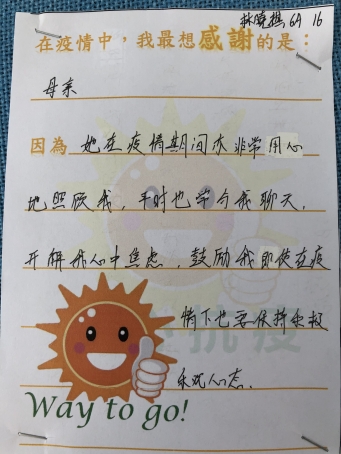 林曉 6A 16
在疫情中，我最想感謝的是：
母亲
因為 她在疫情期间亦非常用心
地照顾我，平时也学与我聊天，
开解我心中焦虑，鼓励我即使在疫
情下也要保持乐观
心态.
抗疫
Way to go!